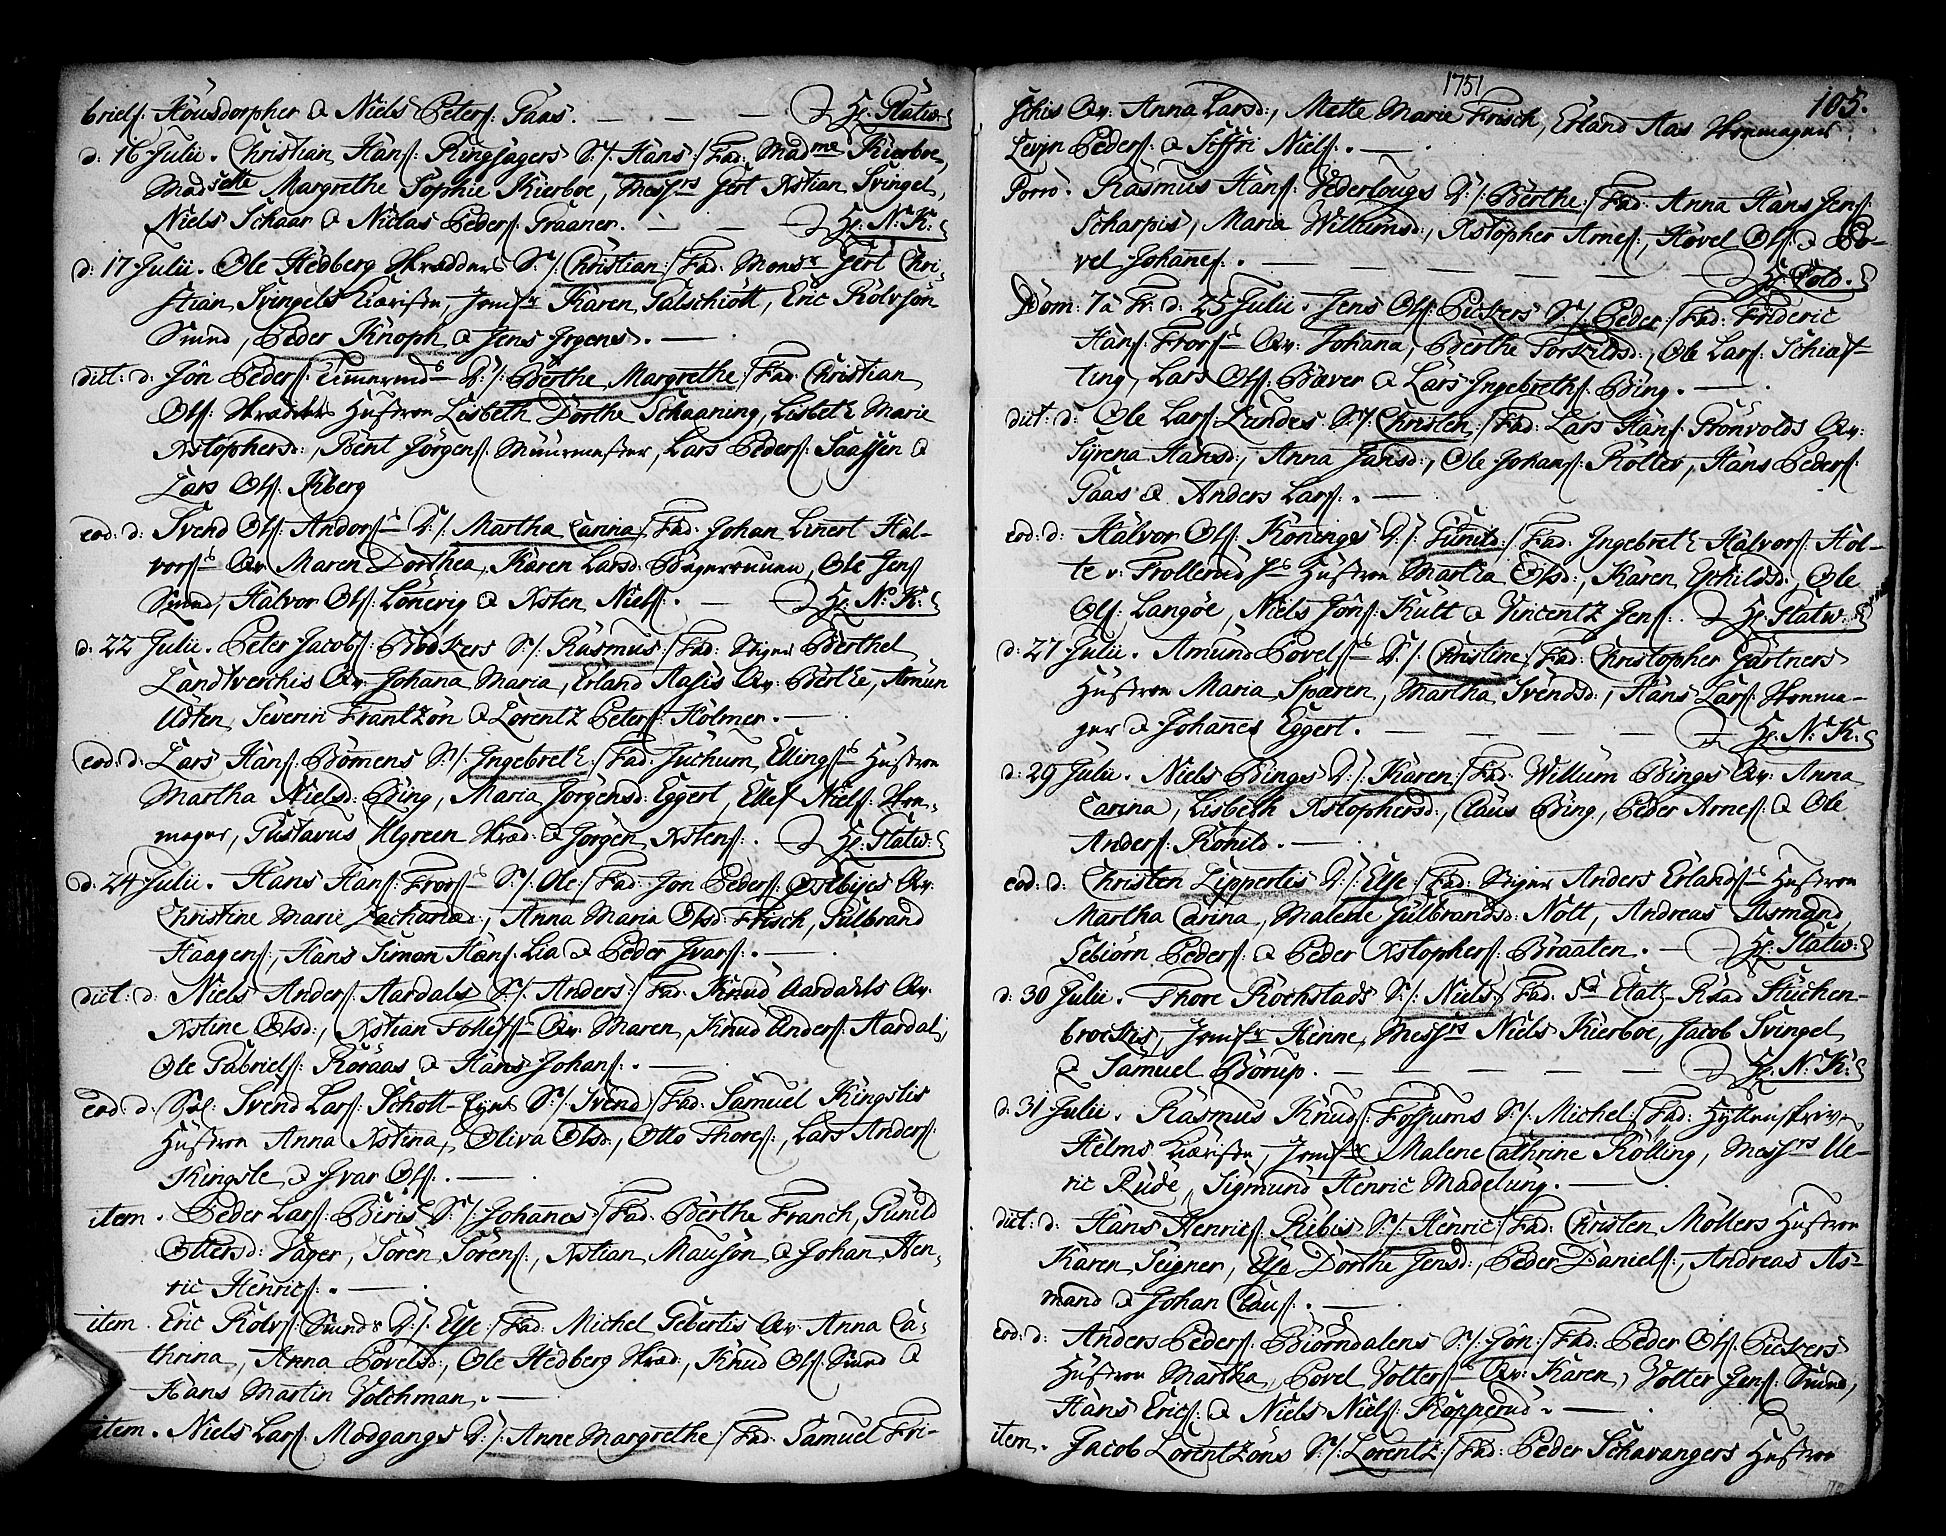 briels: Housdorpher & Niels Peters: Gaas. — — — Hr. Statw:
d. 16 Julii. Christian Hans: Ringjagers S./: Hans :/ Fad: Madme Kierboe,
Madselle Margrethe Sophie Kierboe, Messrs Gert Xstian Svingel,
Niels Schaar & Niclas Peders: Graaner. — — — Hr. N: K:
d: 17 Julii. Ole Hedberg Skredders S./: Christian :/ Fad: Monsr Gert Chri-
stian Svingels Kiæriste, Jomfr Karen Galschiøtt, Eric Rolvsøn
Smed, Peder Knoph & Jens Jrgens. —
dict: d: Jøn Peders: Timermds D:/: Børthe Margrethe :/ Fad: Christian
Ols: Skredders Hustroe Lisbeth Dorthe Schaaning, Lisbeth Marie
Xstophersd:, Bent Jørgens: Muurmester, Lars Peders: Saassen &
Lars Ols: Kberg
eod: d: Svend Ols: Anders: D:/: Martha Carina :/ Fad: Johan Linert Hal-
vors: Qv: Maren Dorthea, Karen Larsd: Bøgeronnen, Ole Jens:
Smed, Halvor Ols: Lonevig & Xsten Niels: . — Hr. N: K:
d: 22 Julii. Peter Jacobs: Bødkers S./: Rasmus :/ Fad: Stiger Berthel
Landtverchis Qv: Johana Maria, Erland Aasis Qv: Børthe, Amun
Udten, Severin Frantzøn & Lorentz Peters: Holmer. —
eod: d: Lars Hans: Bømens S./: Ingebreth :/ Fad: Juchum Ellings: Hustroe
Martha Nielsd: Bing, Maria Jørgensd: Eggert, Ellef Niels: Skoe-
mager, Gustavus Ulgreen Skræd: & Jørgen Xstens: . Hr. Statw:
d. 24 Julii. Hans Hans: Frors: S./: Ole :/ Fad: Jon Peders: Østbijes Qv:
Christine Marie Zachariæd:, Anna Maria Olsd: Frisch, Gulbrand
Haagens:, Hans Simon Hans: Lia & Peder Jvars: . —
dict: d: Niels Anders: Aardals S./: Anders :/ Fad: Knud Aardahls Qv:
Xstine Olsd:, Xstian Tollefs: Qv: Maren, Knud Anders: Aardal,
Ole Gabriels: Røraas & Hans Johans: . —
eod: d: Sal: Svend Lars: Schott-Eyes S./: Svend :/ Fad: Samuel Kingslis
Hustroe Anna Xstina, Oliva Olsd:, Otto Thores:, Lars Anders:
Kingsle & Jvar Ols: . —
item. Peder Lars: Biris S./: Johanes :/ Fad: Børthe Franch, Gunild
Ottersd: Sager, Søren Sørens:, Xstian Mausøn & Johan Hen-
ric Henrics: . —
item. Eric Rolvs: Smeds D:/: Else :/ Fad: Michel Gebertis Qv: Anna Ca-
thrina, Anna Povelsd:, Ole Hedberg Skræd:, Knud Ols: Smed &
Hans Martin Volchman. —
item. Niels Lars: Modgangs D:/: Anne Margrethe :/ Fad: Samuel Fri-
1751
105.
schis Qv: Anna Larsd:, Mette Marie Frisch, Erland Aas Skoemager
Levjn Peders: & Siffri Niels: . —
Porro. Rasmus Hans: Vederlougs D:/: Børthe :/ Fad: Anna Hans Jens:
Scharpis, Maria Willumsd:, Xstopher Arnes:, Hovel Ols: & Po-
vel Johanes: . — — — — — — Hr. Fold.
Dom: 7 a Tr: d: 25 Julii. Jens Ols: Pickers S./: Peder :/ Fad: Frideric
Hans: Frors: Qv: Johana, Børthe Torkildsd:, Ole Lars: Schiæf-
ting, Lars Ols: Bæver & Lars Ingebreths: Bing. —
dict: d: Ole Lars: Lundes S./: Christen :/ Fad: Lars Hans: Grønvolds Qv:
Syrena Hansd:, Anna Jansd:, Ole Johans: Roller, Hans Peders:
Gaas & Anders Lars: . —
eod: d: Halvor Ols: Konings D:/: Gunild :/ Fad: Ingebreth Halvors: Hol-
te v: Trollerud Hustroe Martha Olsd:, Karen Eschildsd:, Ole
Ols: Langøe, Niels Jøns: Kult & Vincentz Jens: . Hr. Statw:
d: 27 Julii. Amund Povels: D:/: Christine :/ Fad: Christopher Gartners
Hustroe Maria Sparen, Martha Svendsd:, Hans Lars: Skoema-
ger & Johanes Eggert. — — — — — Hr. N: K:
d: 29 Julii. Niels Binges D:/: Karen :/ Fad: Willum Binges Qv: Anna
Carina, Lisbeth Xstophersd:, Claus Bing, Peder Arnes: & Ole
Anders: Rønild. —
eod: d: Christen Lippertis D:/: Else :/ Fad: Stiger Anders Erlands: Hustroe
Martha Carina, Malene Gulbrandsd: Nott, Andreas Asmand,
Gebiørn Peders: & Peder Xstophers: Braaten. — Hr. Statw:
d: 30 Julii. Thore Rochstads S./: Niels :/ Fad: Etatz-Raad Stuchen-
brockis, Jomfr Henne, Messrs Niels Kierboe, Jacob Svingel
& Samuel Børup. — — — — — Hr. N: K:
d: 31 Julii. Rasmus Knuds: Fossums S./: Michel :/ Fad: Hyttenskriver
Helms Kiæriste, Jomfr Malene Cathrine Rølling, Messrs Ul-
ric Rude, Sigmund Henric Madelung. —
dict: d: Hans Henrics: Ribis S./: Henric :/ Fad: Christen Møllers Hustroe
Karen Seigner, Else Dorthe Jensd:, Peder Daniels:, Andreas As-
mand & Johan Claus: . —
eod: d: Anders Peders: Biørndalens S./: Jøn :/ Fad: Peder Ols: Pickers
Hustroe Martha, Povel Volters: Qv: Karen, Volter Jens: Smed,
Hans Erics: & Niels Niels: Kopperud. —
item. Jacob Lorentzøns S./: Lorentz :/ Fad: Peder Schavangers Hustroe